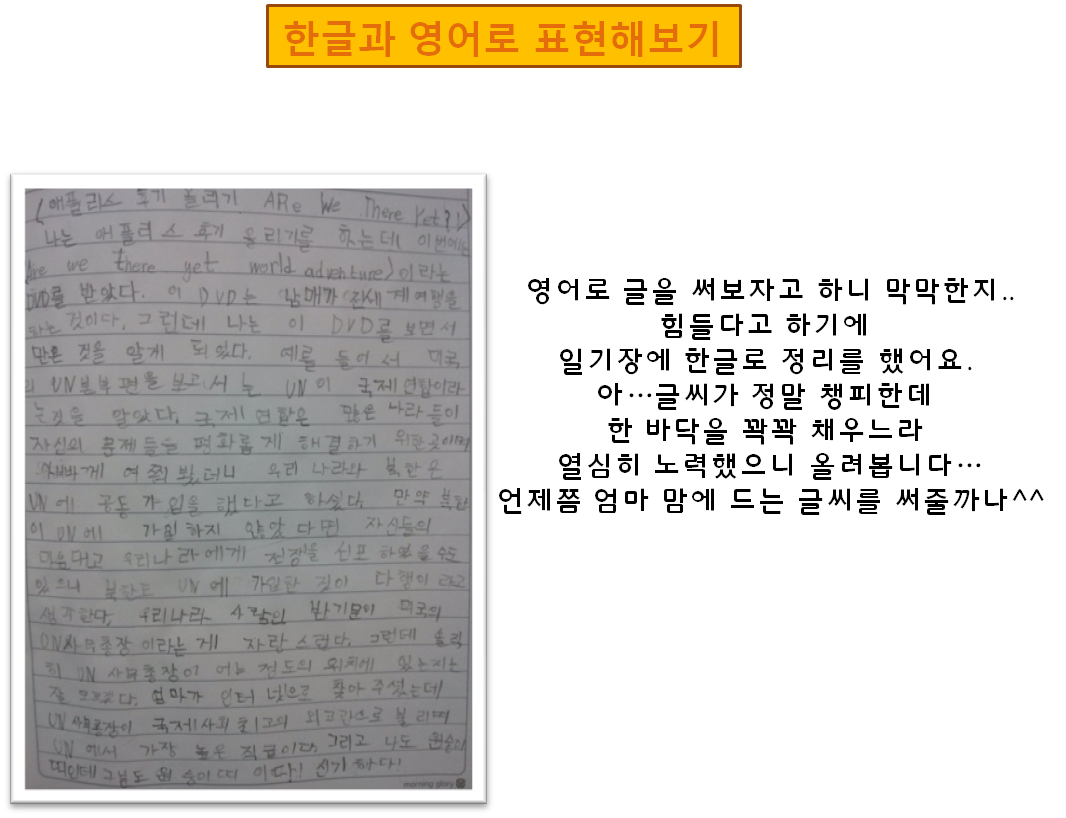 한글과 영어로 표현해보기
(애플리스 후기 올리기. ARe We There Yet?!)
나는 애플리스 후기 올리기를 하는데 이번에는
Are we there yet world adventure)이라는
DVD를 받았다. 이 DVD는 남매가 전세계여행을
하는 것이다. 그런데 나는 이 DVD를 보면서
많은 것을 알게 되었다. 예를 들어서 미국
의 UN본부편을 보고서는 UN이 국제연합이라
는것을 알았다. 국제연합은 많은 나라들이
자신의 문제들을 평화롭게 해결하기 위한곳이며
게 여쭤 봤더니 우리 나라와 북한은
UN에 공동가입을 했다고 하셨다. 만약 북한
이 UN에 가입하지 않았다면 자신들의
우리나라에게 전쟁을 선포 하였을 수도
있으니 북한도 UN에 가입한 것이 다행이라고
생각한다. 우리나라 사람인 반기문이 미국의
UN사무총장이라는게 자랑스럽다. 그런데 솔직
히 UN 사무총장이 어느 정도의 위치에 있는지는
잘 모르겠다. 엄마가 인터넷으로 찾아주셨는데
UN사무총장이 국제사회 최고의 외교관으로 불리며
UN에서 가장 높은 직급이다. 그리고 나도 원숭이
띠인데 그님도 원숭이띠 이다! 신기하다!
morning glory
영어로 글을 써보자고 하니 막막한지..
힘들다고 하기에
일기장에 한글로 정리를 했어요.
아…글씨가 정말 챙피한데
한 바닥을 꽉꽉 채우느라
열심히 노력했으니 올려봅니다…
언제쯤 엄마 맘에 드는 글씨를 써줄까나^^